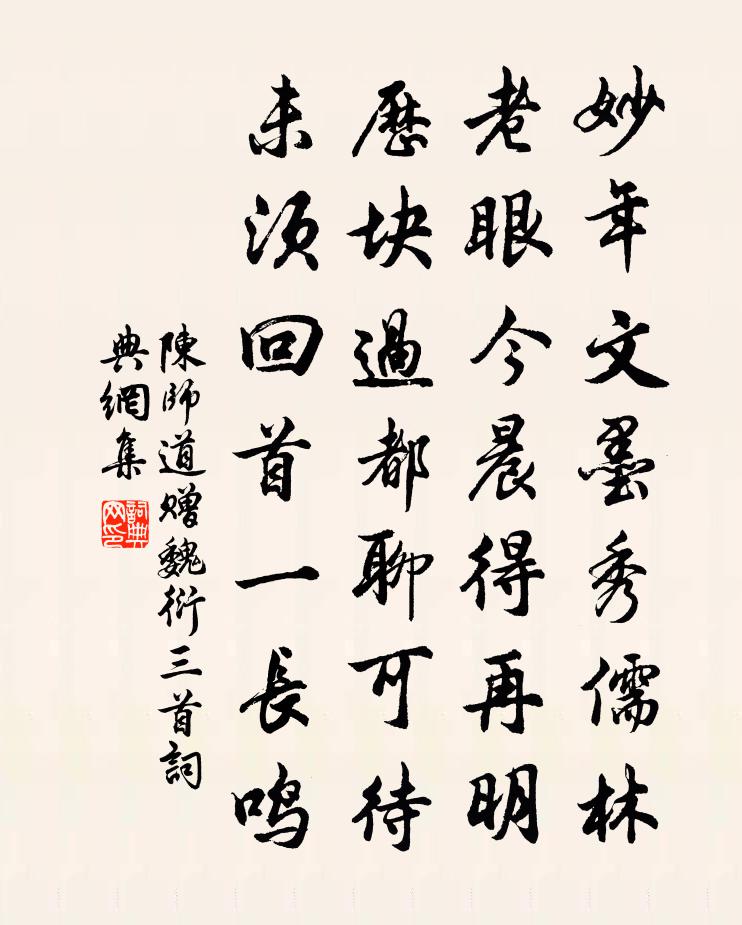 妙年文墨秀儒林
老眼今晨得再明
歷块過都聊可待
未須回首一長鸣
陳師道贈魏衍三首詞
典網集
詞典
网印